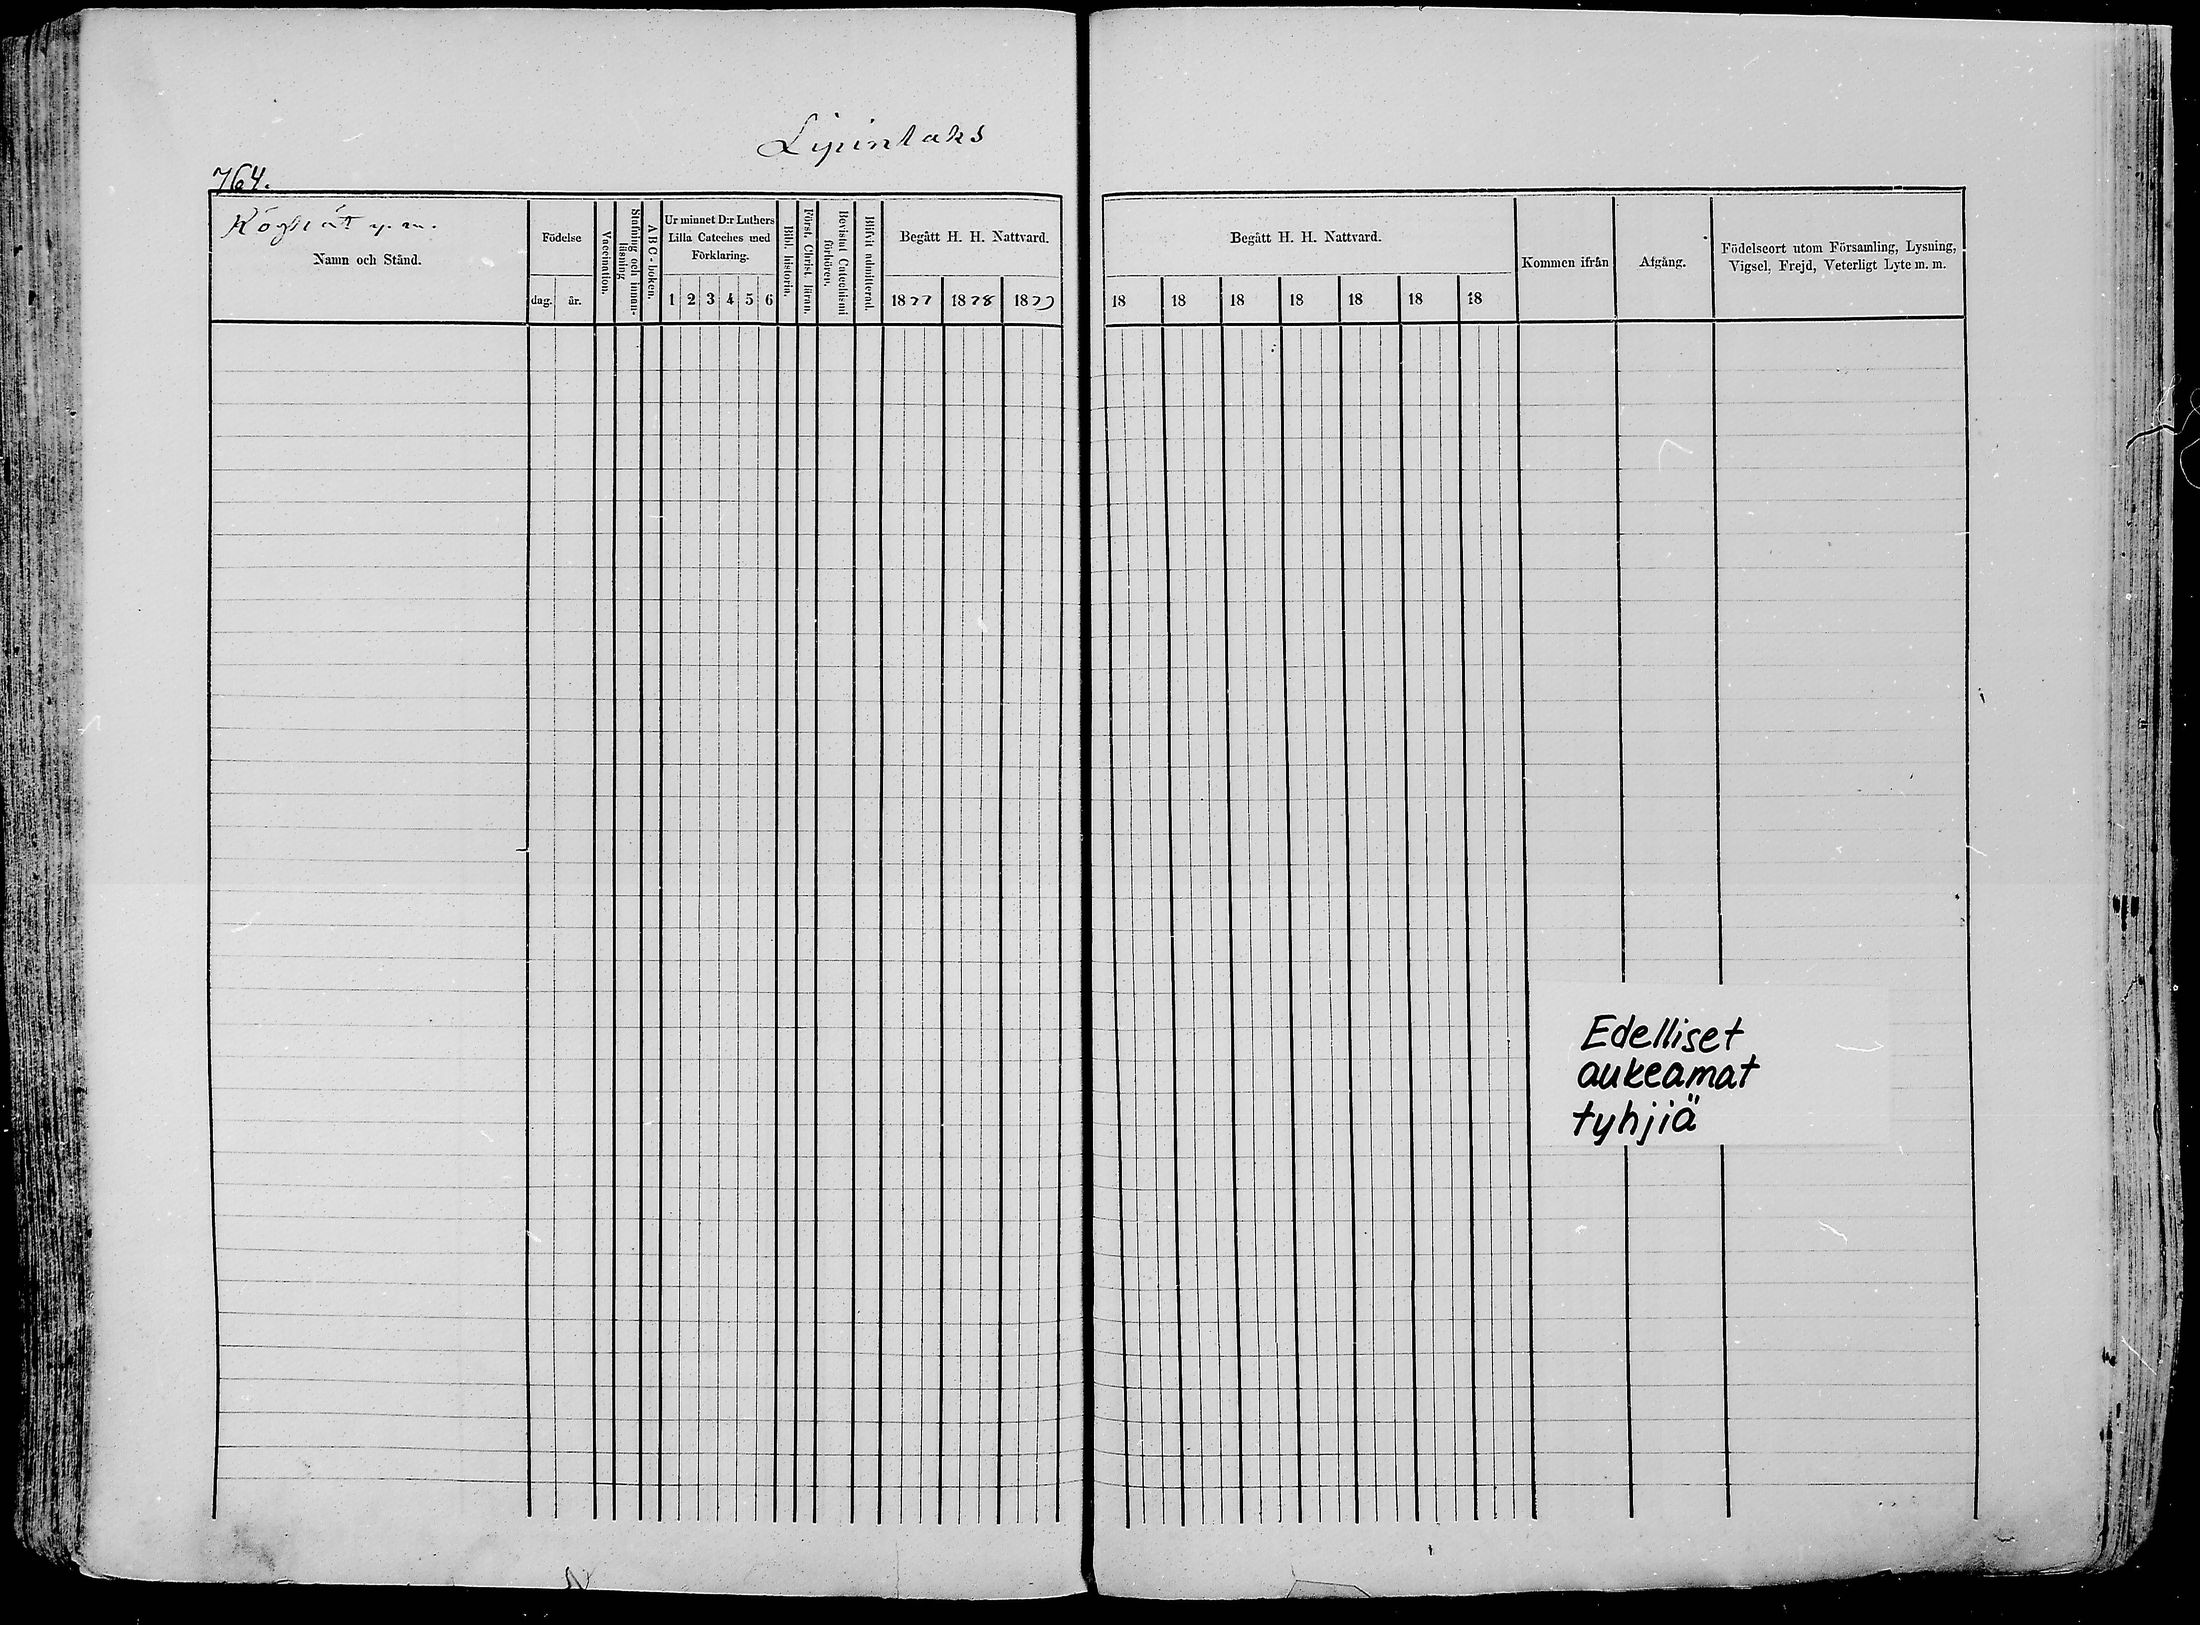 Lipintaks
764.
Namn och Stånd.
Födelse
dag.
år.
Vaccination.
Stafning och innan-
läsning
A B C - boken.
Ur minnet D:r Luthers
Lilla Cateches med
Förklaring.
1 2 3 4 5 6
Bibl. historia.
Först. Christ. läran.
Bevistat Catechismi
förhören.
Blifvit admitterad.
Begått H. H. Nattvard.
1877 1878 1879
Begått H. H. Nattvard.
18 18 18 18 18 18 18
Kommen ifrån
Afgång.
Födelseort utom Församling, Lysning,
Vigsel, Frejd, Veterligt Lyte m. m.
Edelliset
aukeamat
tyhjiä